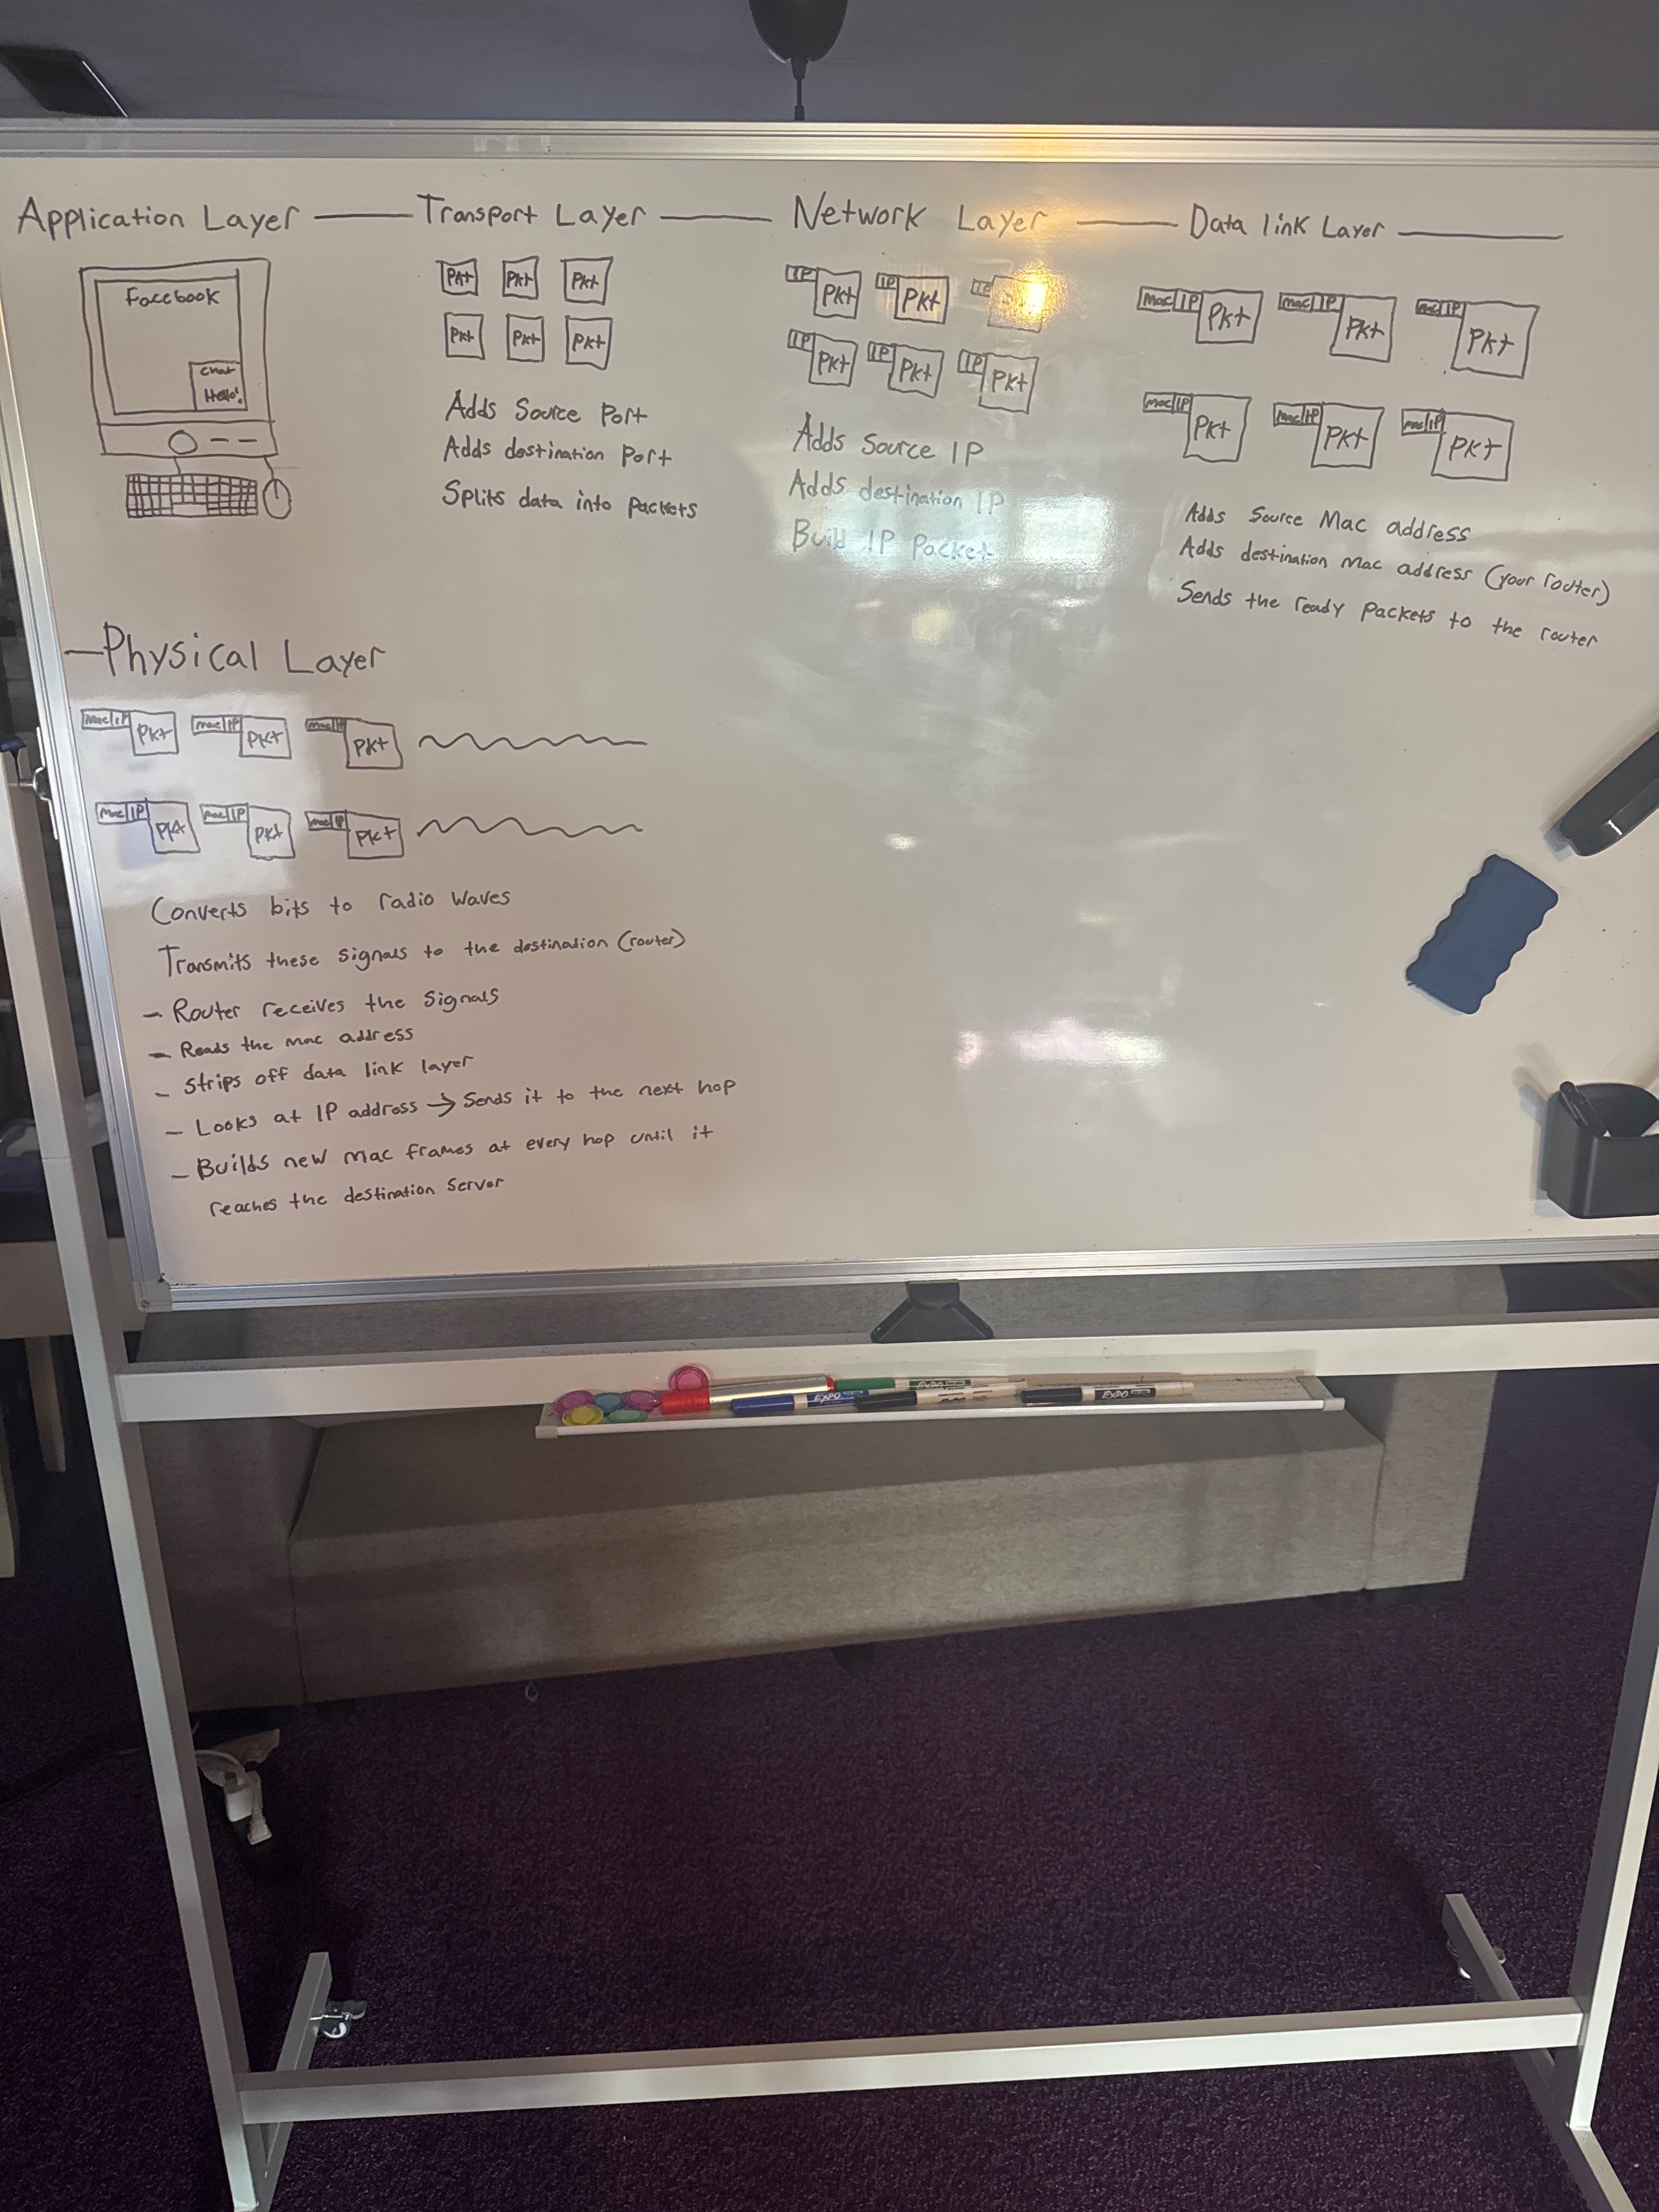 Application Layer — Transport Layer — Network Layer — Data link Layer —
Facebook
Chat
Hello!
Pkt Pkt Pkt
Pkt Pkt Pkt
Adds Source Port
Adds destination Port
Splits data into packets
IP Pkt IP Pkt IP
IP Pkt IP Pkt IP Pkt
Adds Source IP
Adds destination IP
Build IP Packet
Mac IP Pkt Mac IP Pkt Mac IP Pkt
Mac IP Pkt Mac IP Pkt Mac IP Pkt
Adds Source Mac address
Adds destination Mac address (your router)
Sends the ready packets to the router
—Physical Layer
Mac IP Pkt Mac IP Pkt Mac IP Pkt
Mac IP Pkt Mac IP Pkt Mac IP Pkt
Converts bits to radio waves
Transmits these signals to the destination (router)
– Router receives the signals
– Reads the mac address
– Strips off data link layer
– Looks at IP address → Sends it to the next hop
– Builds new mac frames at every hop until it
reaches the destination server
EXPO
EXPO
EXPO